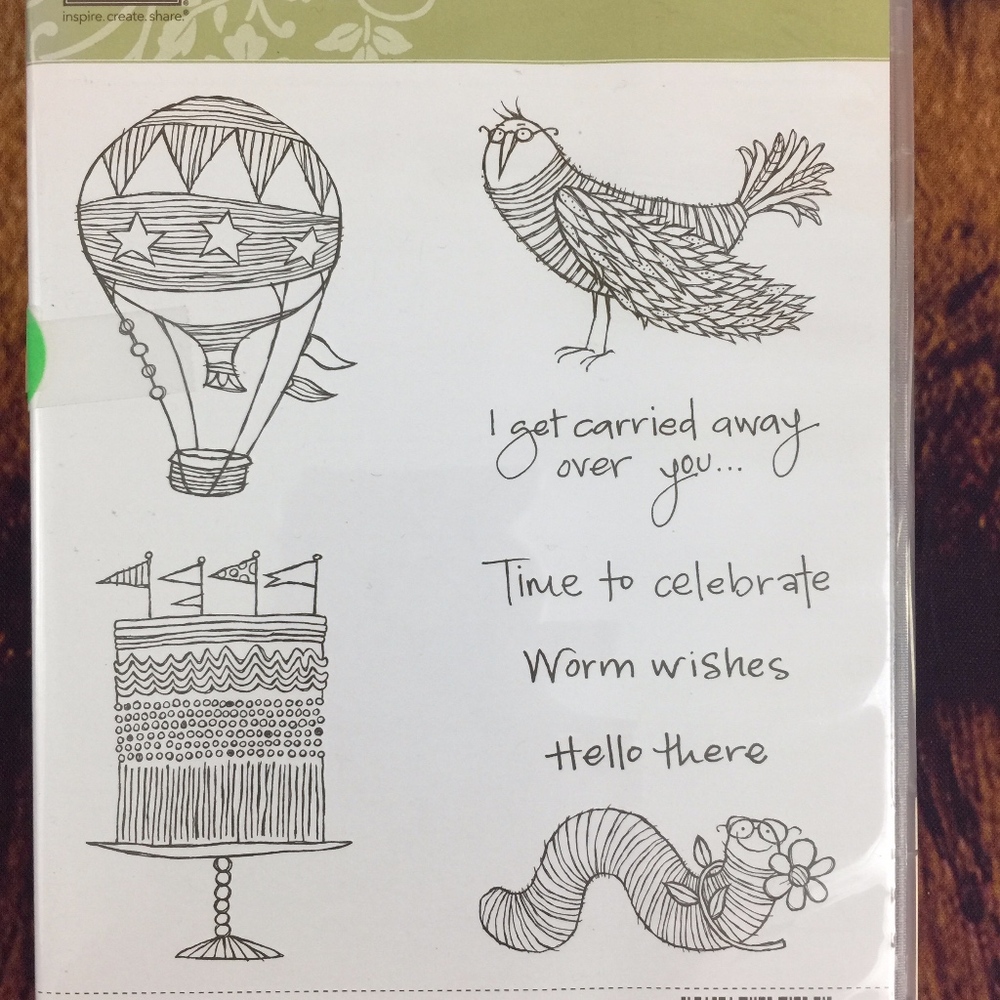 inspire.create.share.®
I get carried away
over you...
Time to celebrate
Worm wishes
Hello there